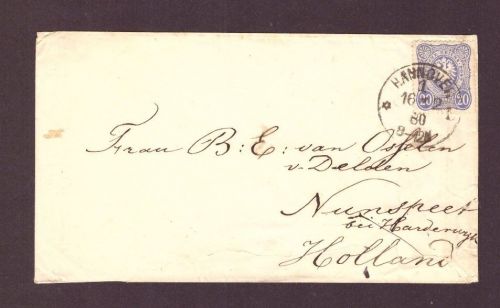 HANNOVER
1
16
80
8-12N
20 20
Frau B: E: van Osselen
v. Delden
Nunspeet
bei Harderwyk
Holland